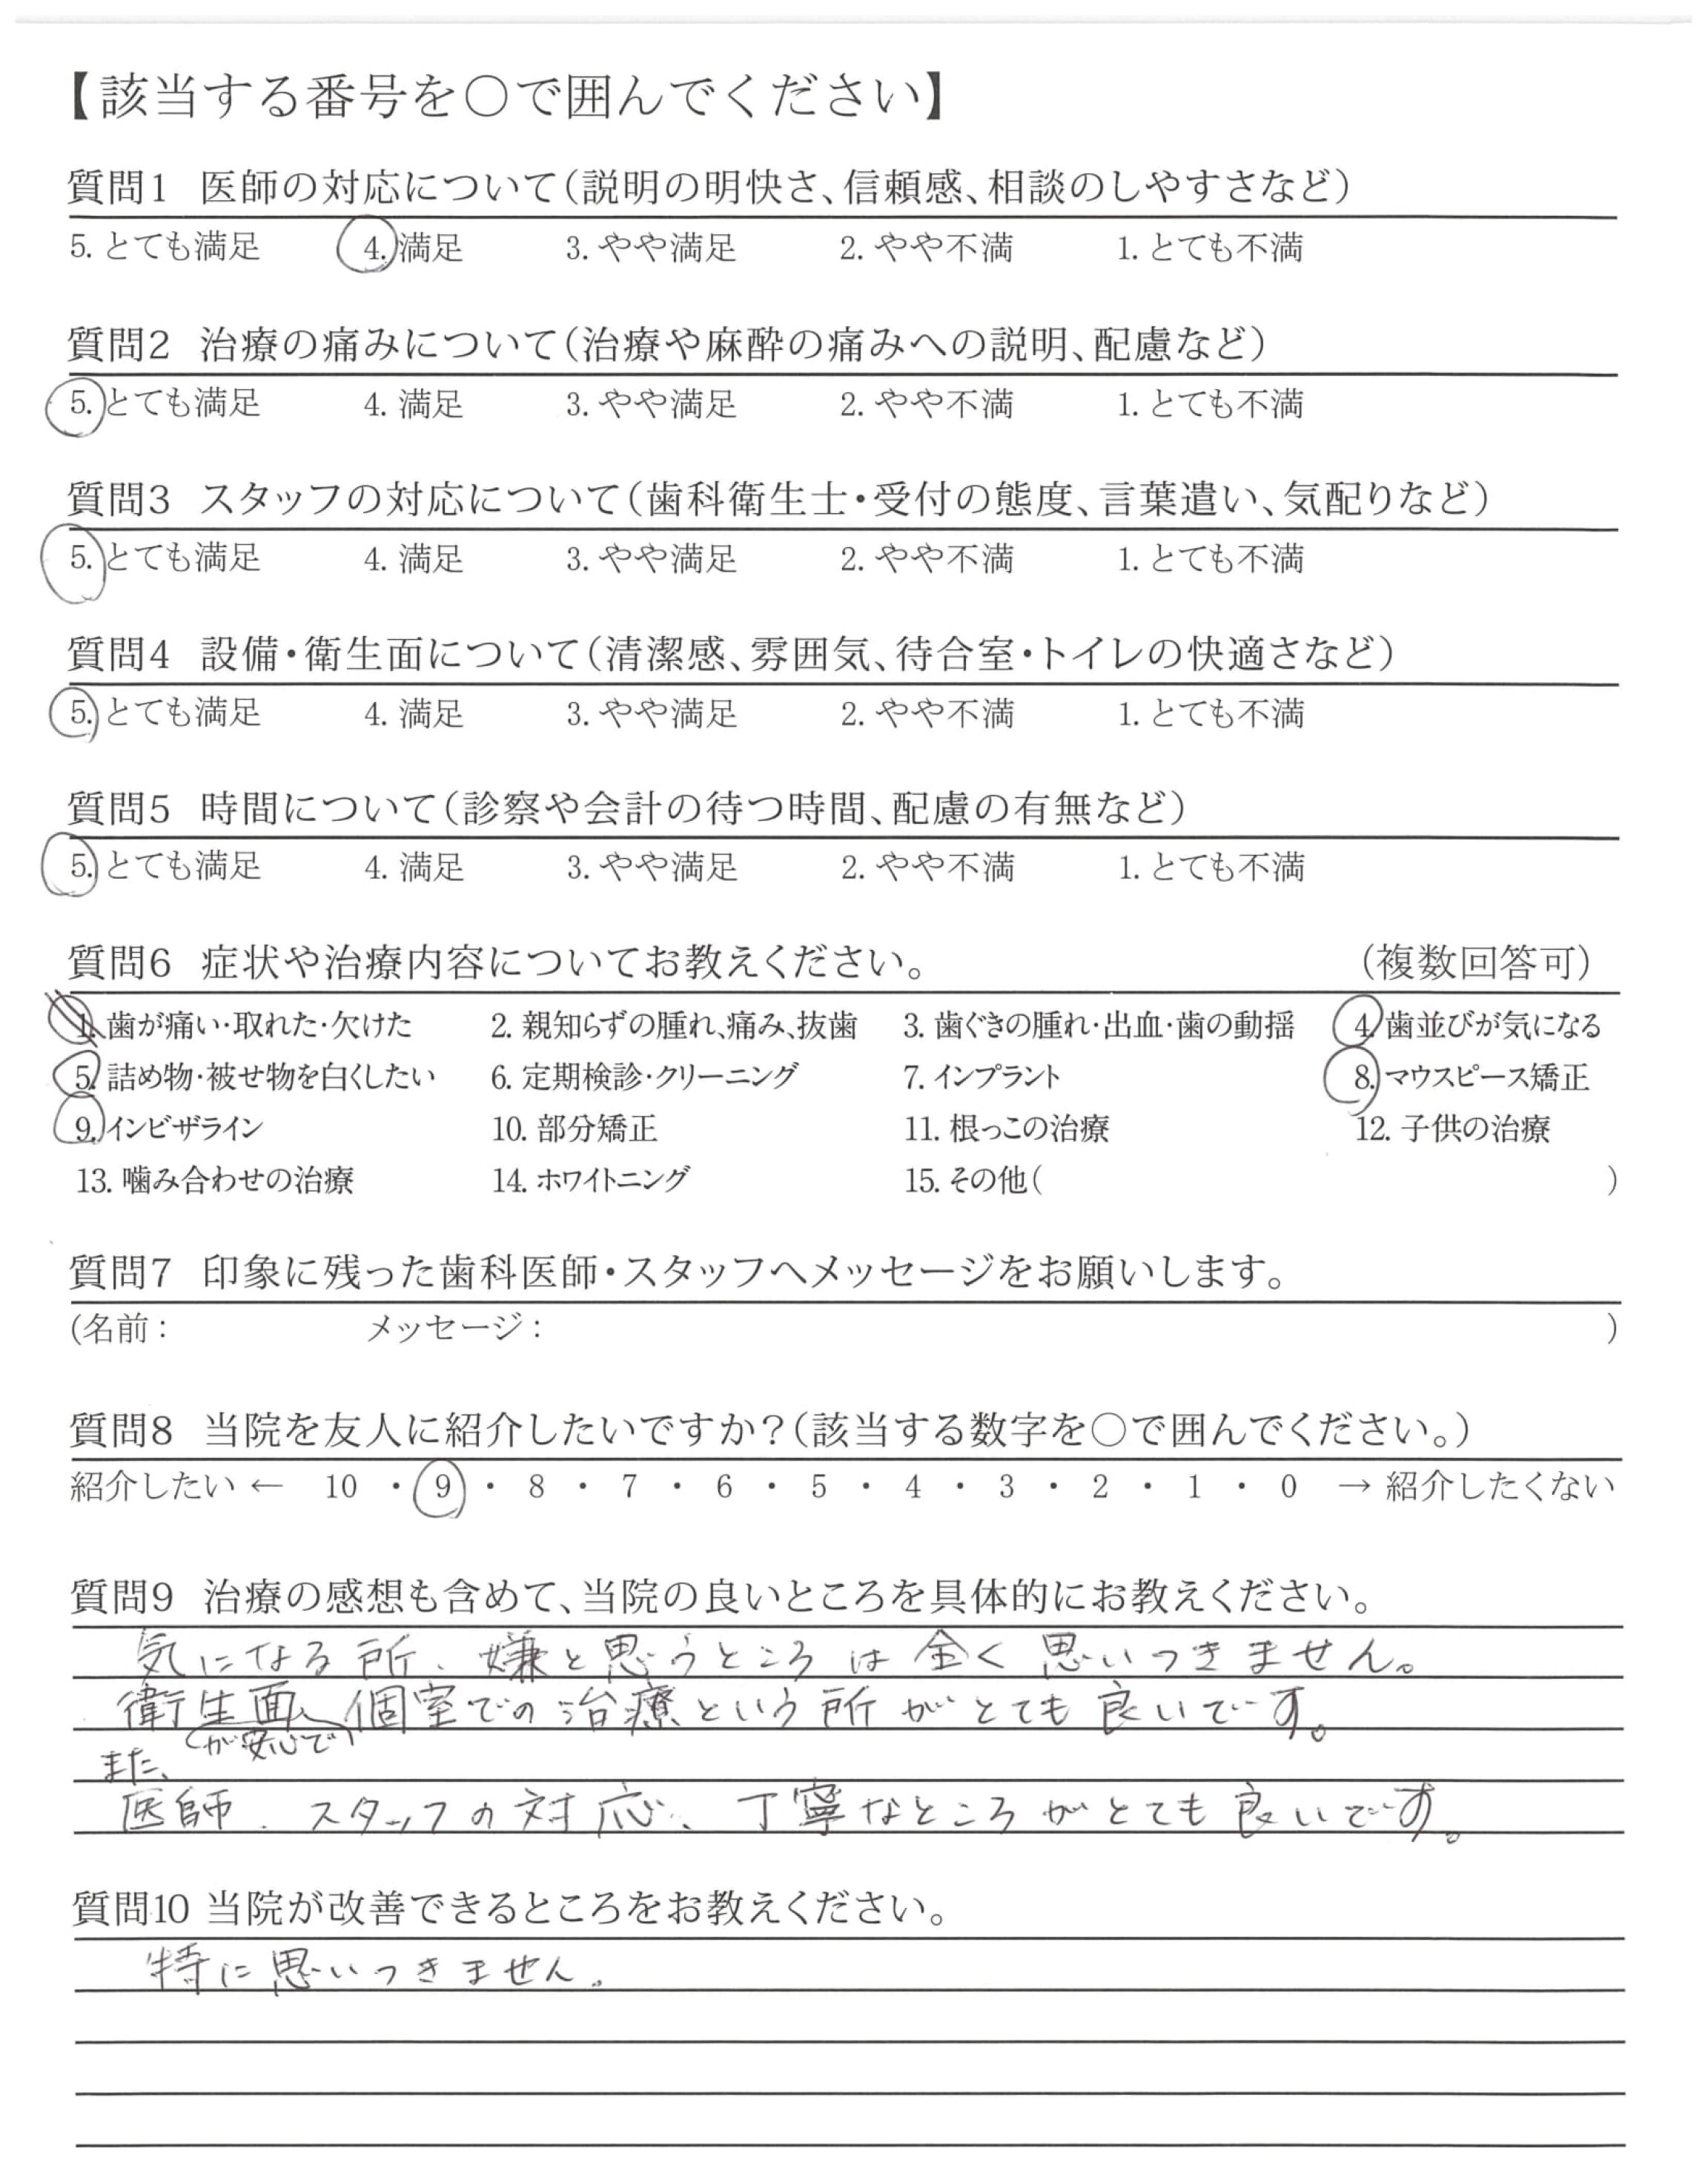 【該当する番号を○で囲んでください】
質問1 医師の対応について（説明の明快さ、信頼感、相談のしやすさなど）
5. とても満足 4. 満足 3. やや満足 2. やや不満 1. とても不満
質問2 治療の痛みについて（治療や麻酔の痛みへの説明、配慮など）
5. とても満足 4. 満足 3. やや満足 2. やや不満 1. とても不満
質問3 スタッフの対応について（歯科衛生士・受付の態度、言葉遣い、気配りなど）
5. とても満足 4. 満足 3. やや満足 2. やや不満 1. とても不満
質問4 設備・衛生面について（清潔感、雰囲気、待合室・トイレの快適さなど）
5. とても満足 4. 満足 3. やや満足 2. やや不満 1. とても不満
質問5 時間について（診察や会計の待つ時間、配慮の有無など）
5. とても満足 4. 満足 3. やや満足 2. やや不満 1. とても不満
質問6 症状や治療内容についてお教えください。 （複数回答可）
1. 歯が痛い・取れた・欠けた 2. 親知らずの腫れ、痛み、抜歯 3. 歯ぐきの腫れ・出血・歯の動揺 4. 歯並びが気になる
5. 詰め物・被せ物を白くしたい 6. 定期検診・クリーニング 7. インプラント 8. マウスピース矯正
9. インビザライン 10. 部分矯正 11. 根っこの治療 12. 子供の治療
13. 噛み合わせの治療 14. ホワイトニング 15. その他（ ）
質問7 印象に残った歯科医師・スタッフへメッセージをお願いします。
(名前： メッセージ： )
質問8 当院を友人に紹介したいですか？（該当する数字を○で囲んでください。）
紹介したい ← 10 ・ 9 ・ 8 ・ 7 ・ 6 ・ 5 ・ 4 ・ 3 ・ 2 ・ 1 ・ 0 → 紹介したくない
質問9 治療の感想も含めて、当院の良いところを具体的にお教えください。
気になる所、嫌と思うところは全く思いつきません。
衛生面、個室での治療という所がとても良いです。
が安心で
また、
医師、スタッフの対応、丁寧なところがとても良いです。
質問10 当院が改善できるところをお教えください。
特に思いつきません。